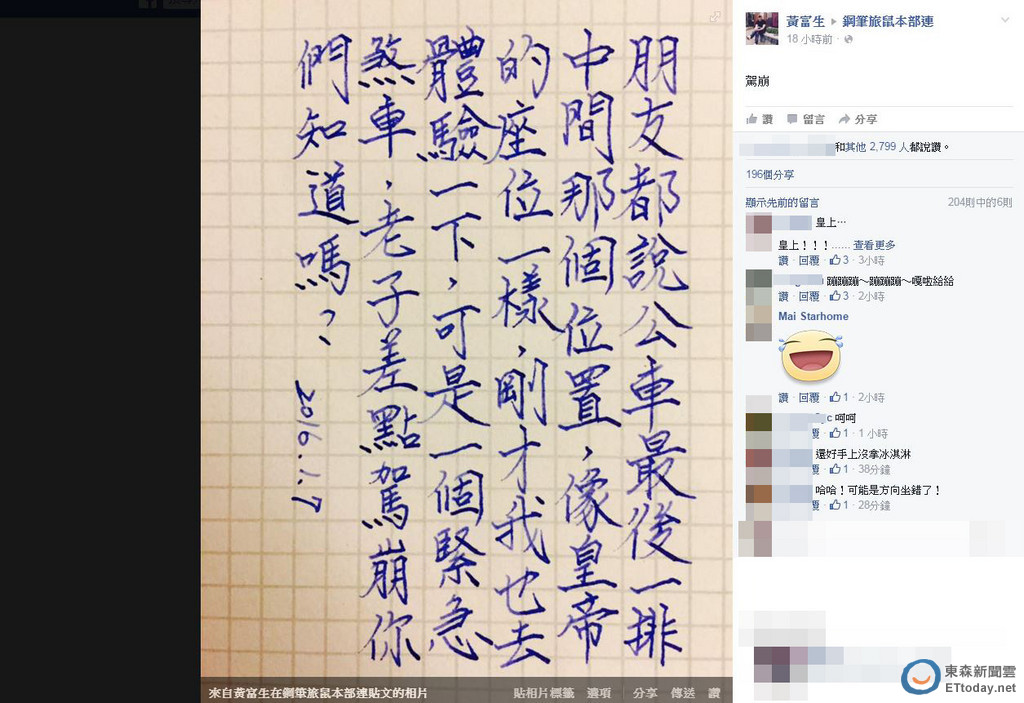 朋友都說公車最後一排
中間那個位置，像皇帝
的座位一樣，剛才我也去
體驗一下，可是一個緊急
煞車，老子差點駕崩你
們知道嗎？
2016.1.7
來自黃富生在鋼筆旅鼠本部連貼文的相片
貼相片標籤 選項 分享 傳送 讚
黃富生 ▸ 鋼筆旅鼠本部連
18 小時前
駕崩
讚 留言 分享
和其他 2,799 人都說讚。
196個分享
顯示先前的留言 204則中的6則
皇上…
皇上！！！…… 查看更多
讚 · 回覆 · 3 · 3小時
蹦蹦蹦～蹦蹦蹦～嘎啦給給
讚 · 回覆 · 3 · 2小時
Mai Starhome
讚 · 回覆 · 1 · 2小時
呵呵
覆 · 1 · 1 小時
還好手上沒拿冰淇淋
覆 · 1 · 38分鐘
哈哈！可能是方向坐錯了！
覆 · 1 · 28分鐘
東森新聞雲
ETtoday.net